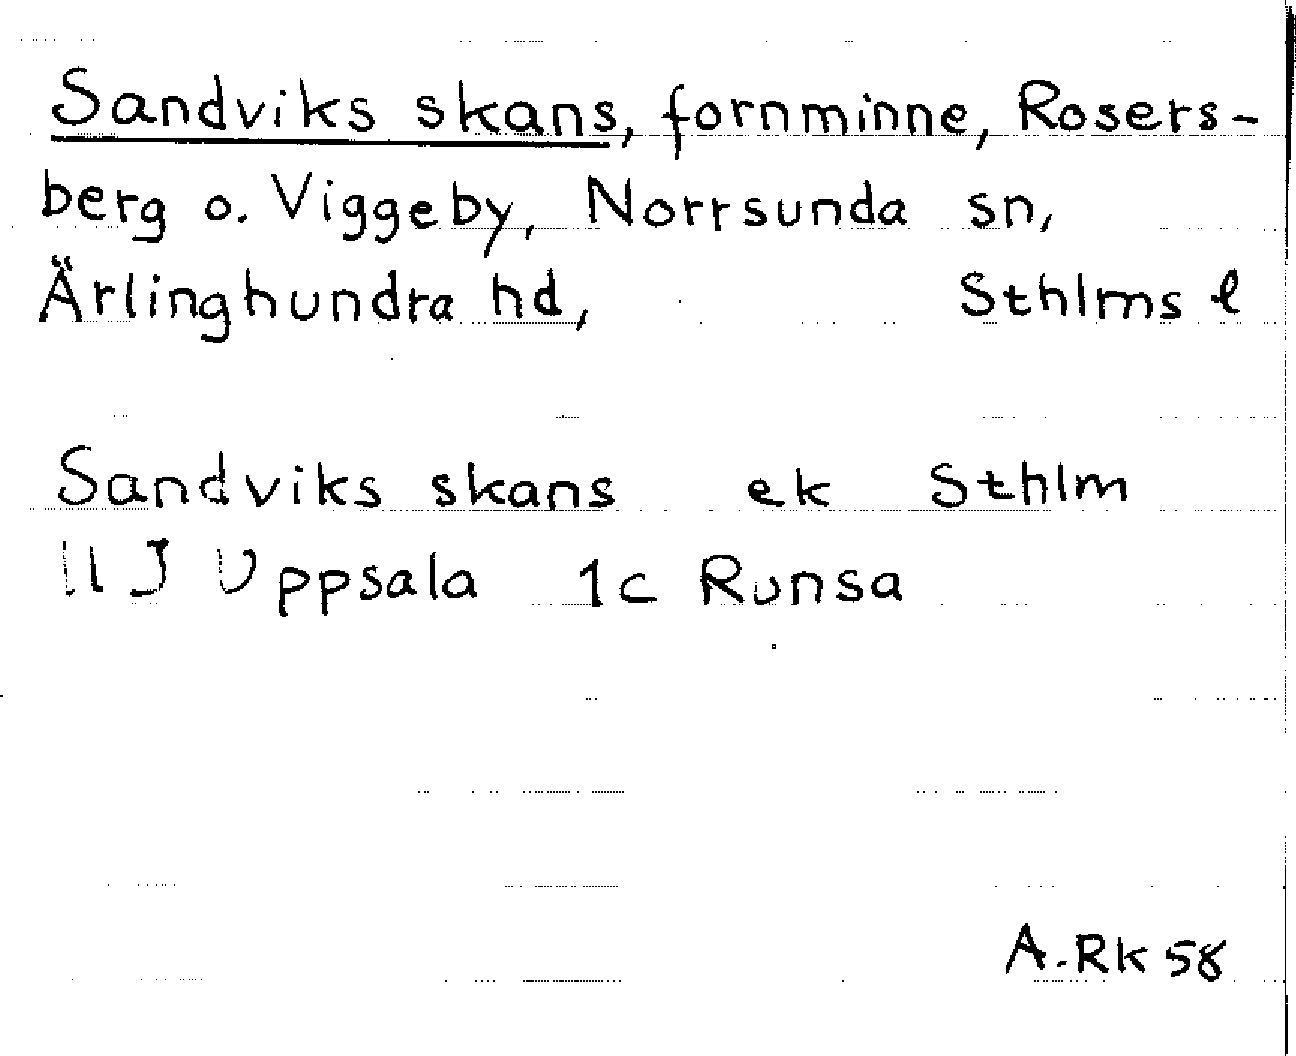 Sandviks skans, fornminne, Rosers-
berg o. Viggeby, Norrsunda sn,
Ärlinghundra hd, Sthlms l
Sandviks skans ek Sthlm
11 J Uppsala 1c Runsa
A-RK 58